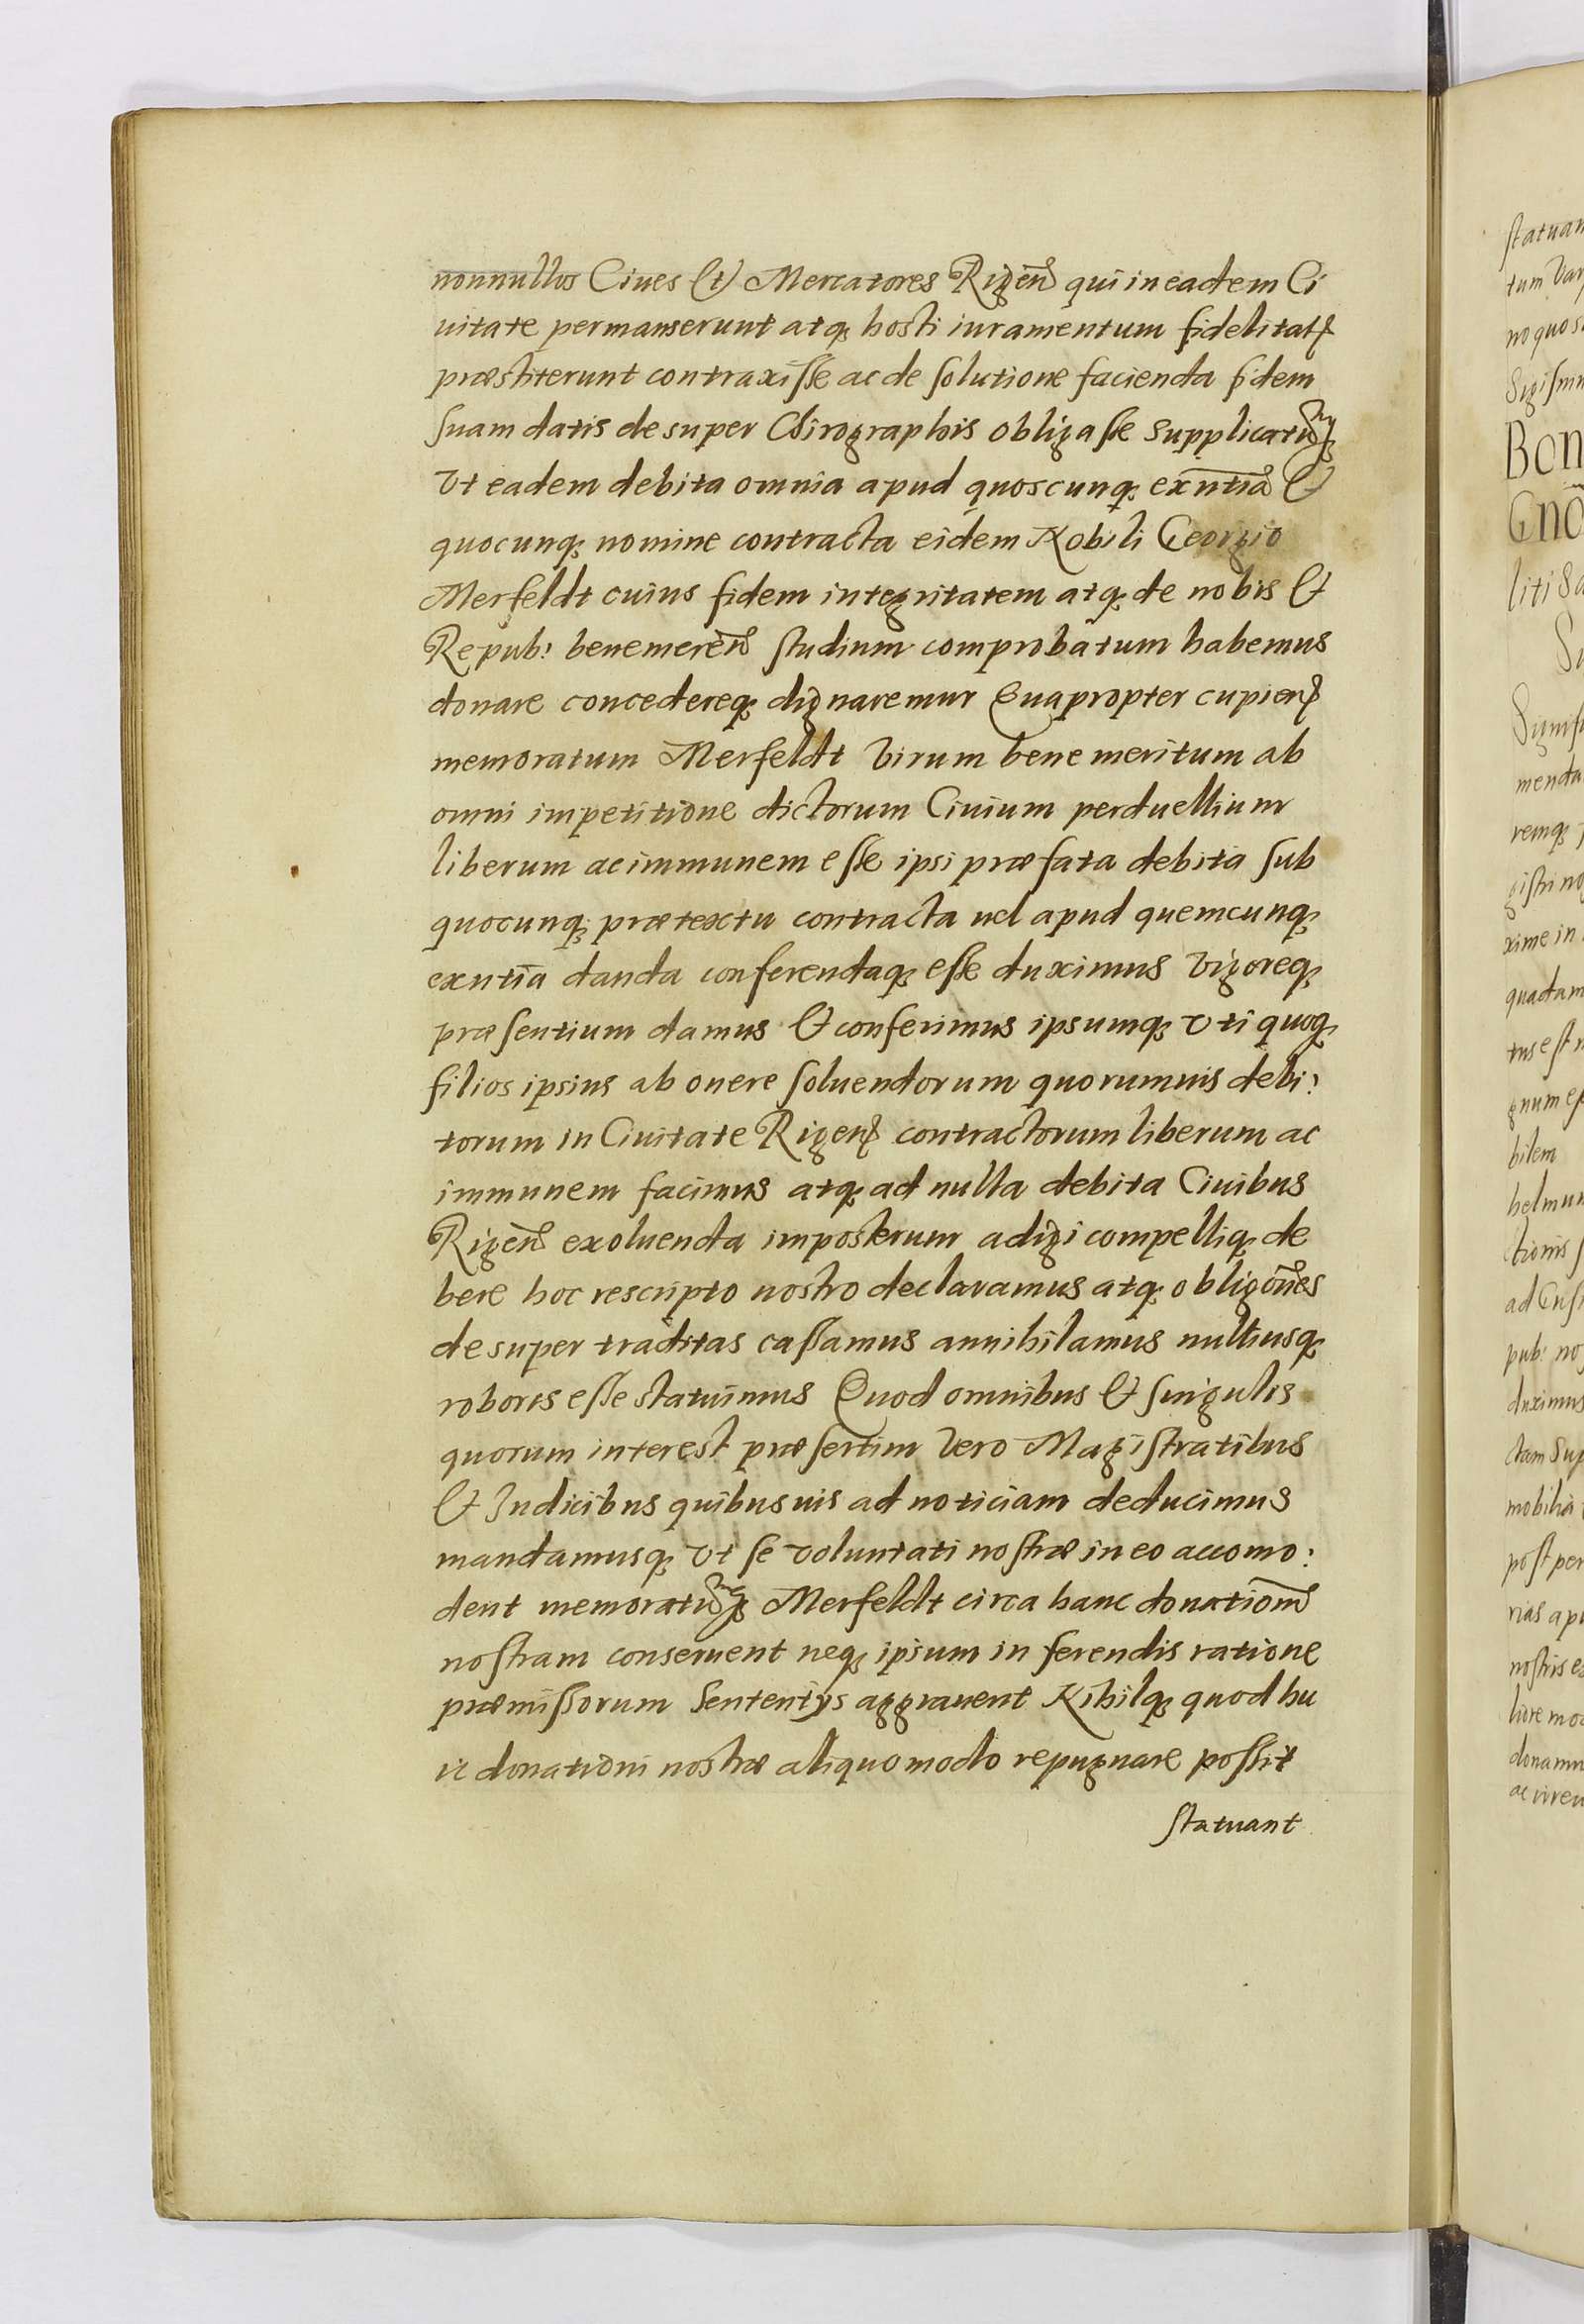 nonnullos Ciues et Mercatores Rigen̄ qui in eadem Ci
uitate permanserunt atq; hosti iuramentum fidelitatꝭ
præstiterunt contraxisse ac de solutione facienda fidem
suam datis desuper Chirographis obligasse supplicatumq;
vt eadem debita omnia apud quoscunq; exn̄tia &
quocunq; nomine contracta eidem Nobili Georgio
Merfeldt cuius fidem integritatem atq; de nobis &
Repub: benemeren̄ studium comprobatum habemus
donare concedereq; dignaremur Quapropter cupienꝭ
memoratum Merfeldt virum bene meritum ab
omni impetitione dictorum Ciuium perduellium
liberum ac immunem esse ipsi præfata debita sub
quocunq; prætextu contracta uel apud quemcunq;
exn̄tia danda conferendaq; esse duximus vigoreq;
præsentium damus & conferimus ipsumq; vti quoq;
filios ipsius ab onere soluendorum quorumuis debi:
torum in Ciuitate Rigenꝭ contractorum liberum ac
immunem facimus atq; ad nulla debita Ciuibus
Rigen̄ exoluenda imposterum adigi compelliq; de
bere hoc rescripto nostro declaramus atq; obligōnes
desuper traditas cassamus annihilamus nulliusq;
roboris esse statuimus Quod omnibus & singulis
quorum interest præsertim vero Magistratibus
& Iudicibus quibusuis ad noticiam deducimus
mandamusq; vt se voluntati nostræ in eo accomo:
dent memoratumq; Merfeldt circa hanc donationē
nostram conseruent neq; ipsum in ferendis ratione
præmissorum sententijs aggrauent Nihilq; quod hu
ic donationi nostræ aliquo modo repugnare possit
statuant